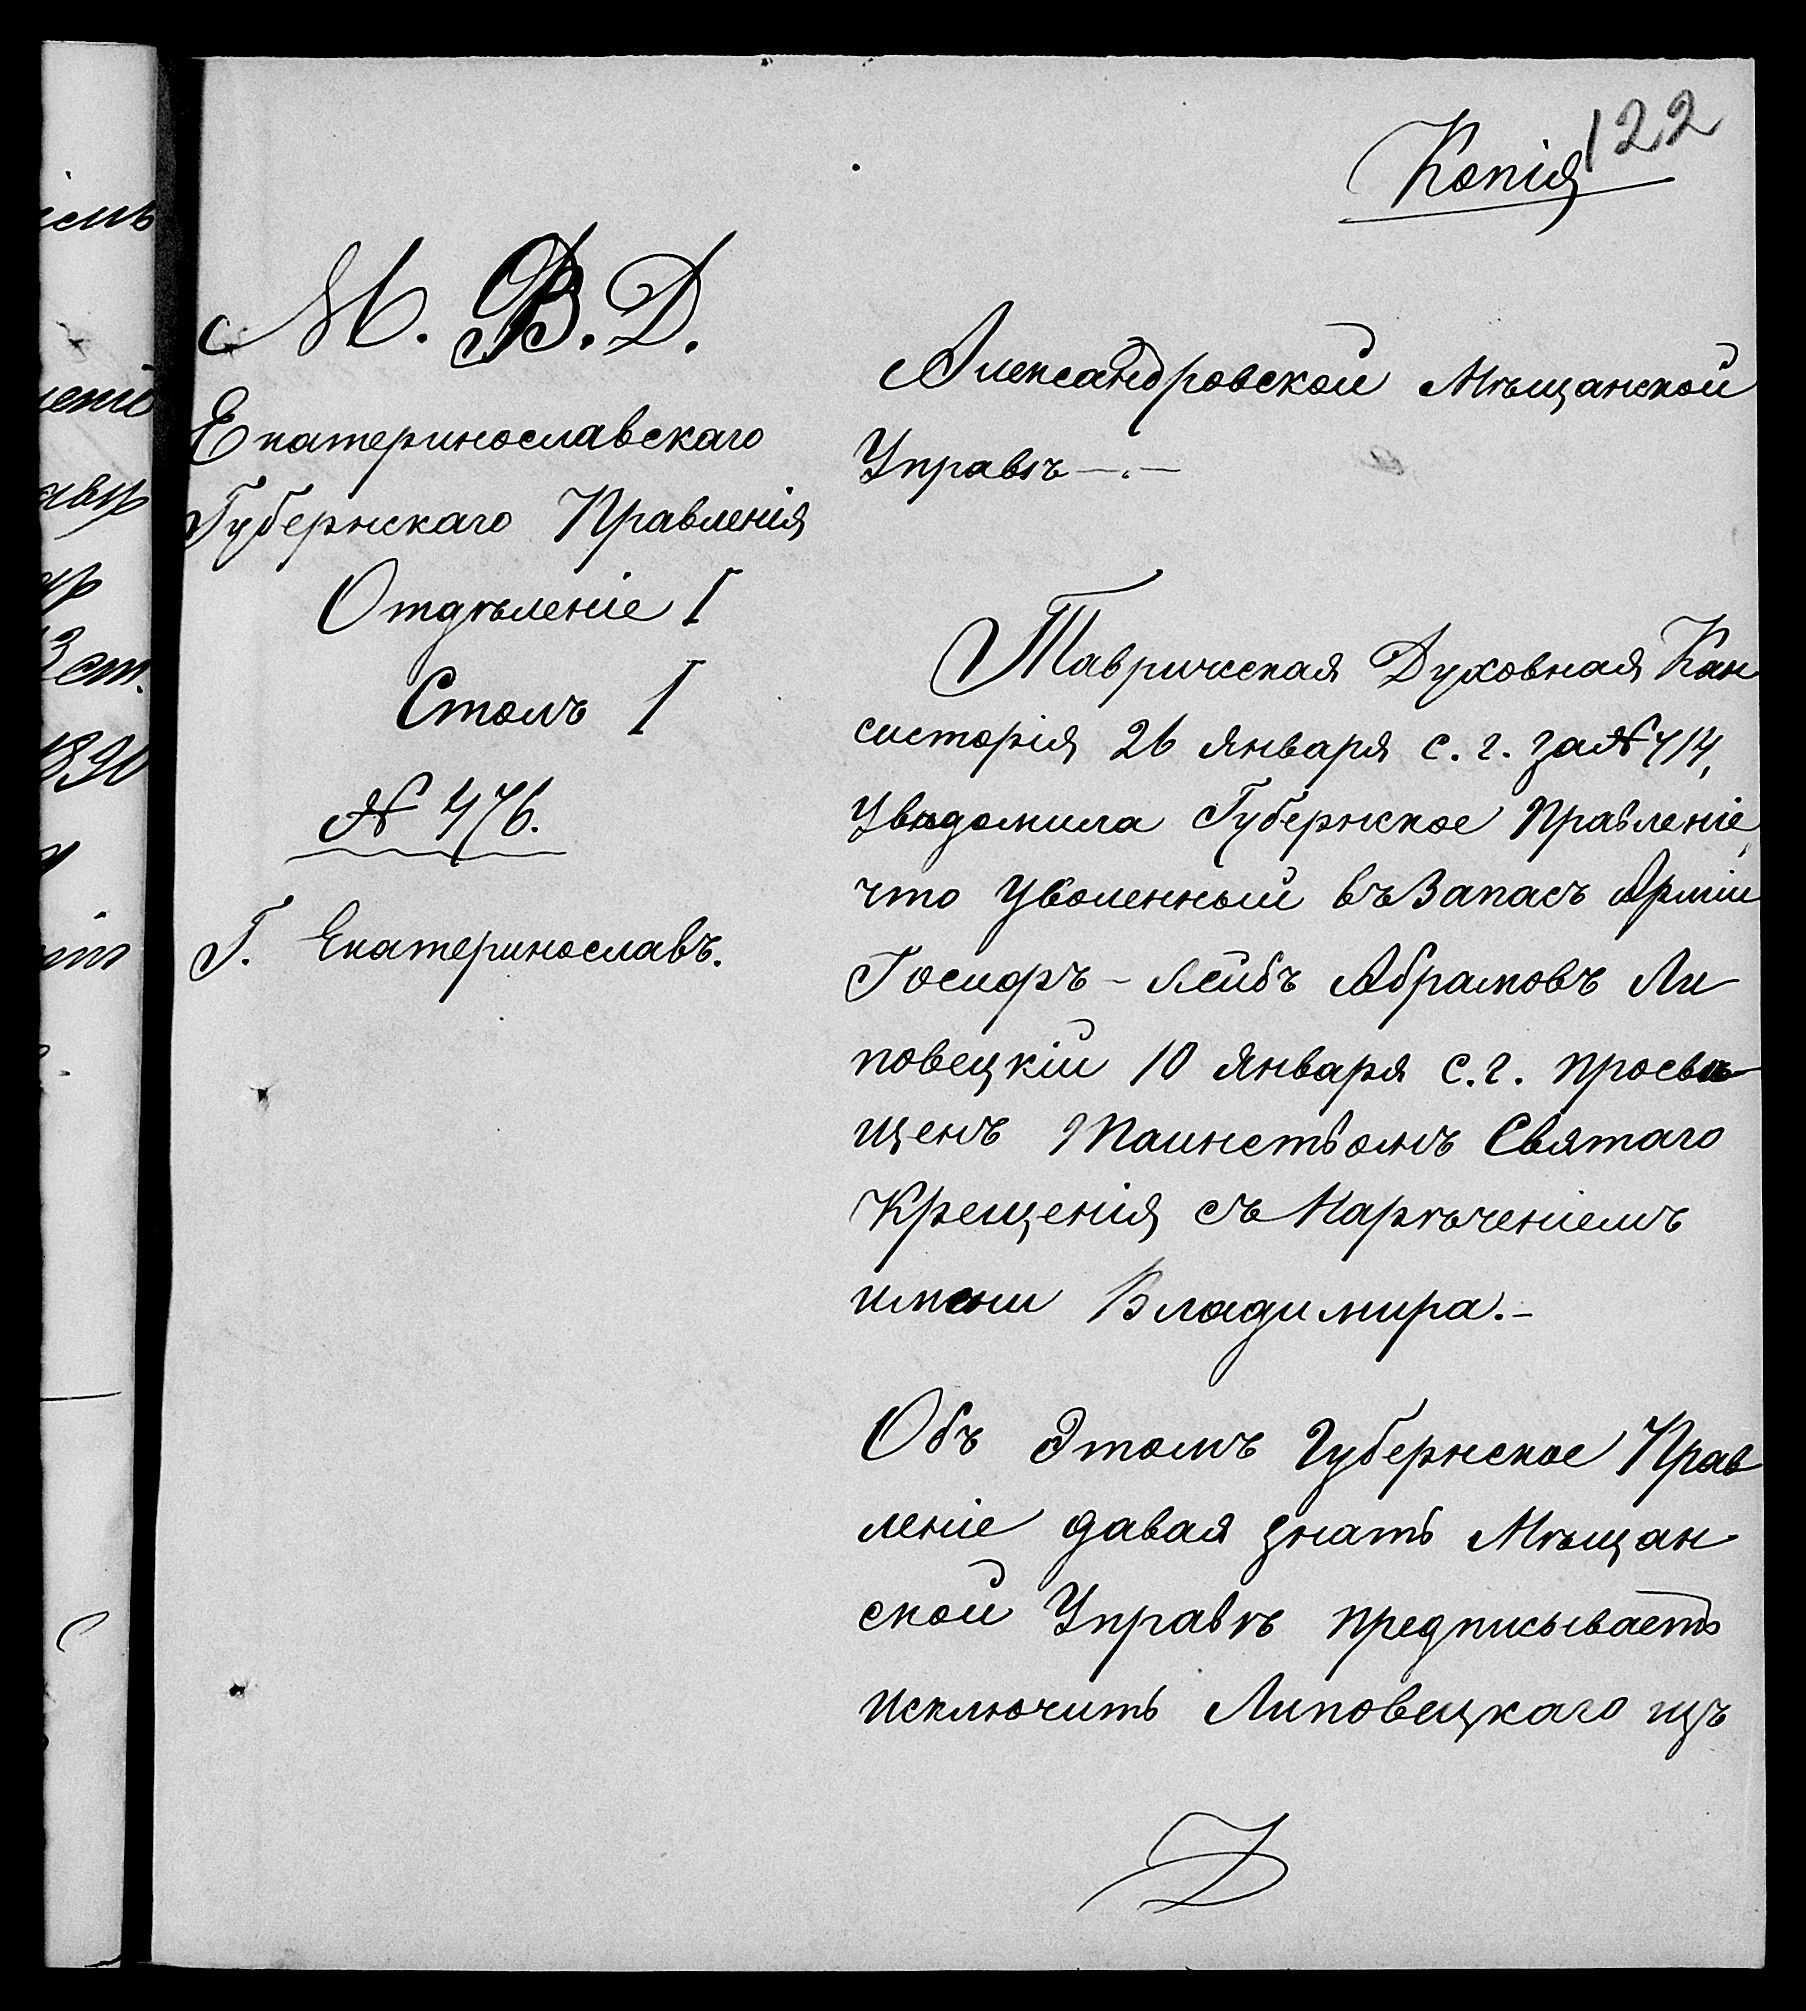 122
Копія
М. В. Д.
Екатеринославскаго
Губернскаго Правленія
Отдѣленіе I
Столъ I
№ 476.
Г. Екатеринославъ.
Александровской Мѣщанской
Управѣ —.—
Таврическая Духовная Кон
систорія 26 Января с. г. за № 714,
Увѣдомила Губернское Правленіе,
что Уволенный въ Запасъ Арміи
Іосифъ-Лейбъ Абрамовъ Ли
повецкій 10 Января с. г. просвѣ
щенъ Таинствомъ Святаго
Крещенія съ Нарѣченіемъ
имени Владимира.-
Объ Этомъ Губернское Прав
леніе давая знать Мѣщан
ской Управѣ предписываетъ
исключить Липовецкаго изъ
1890